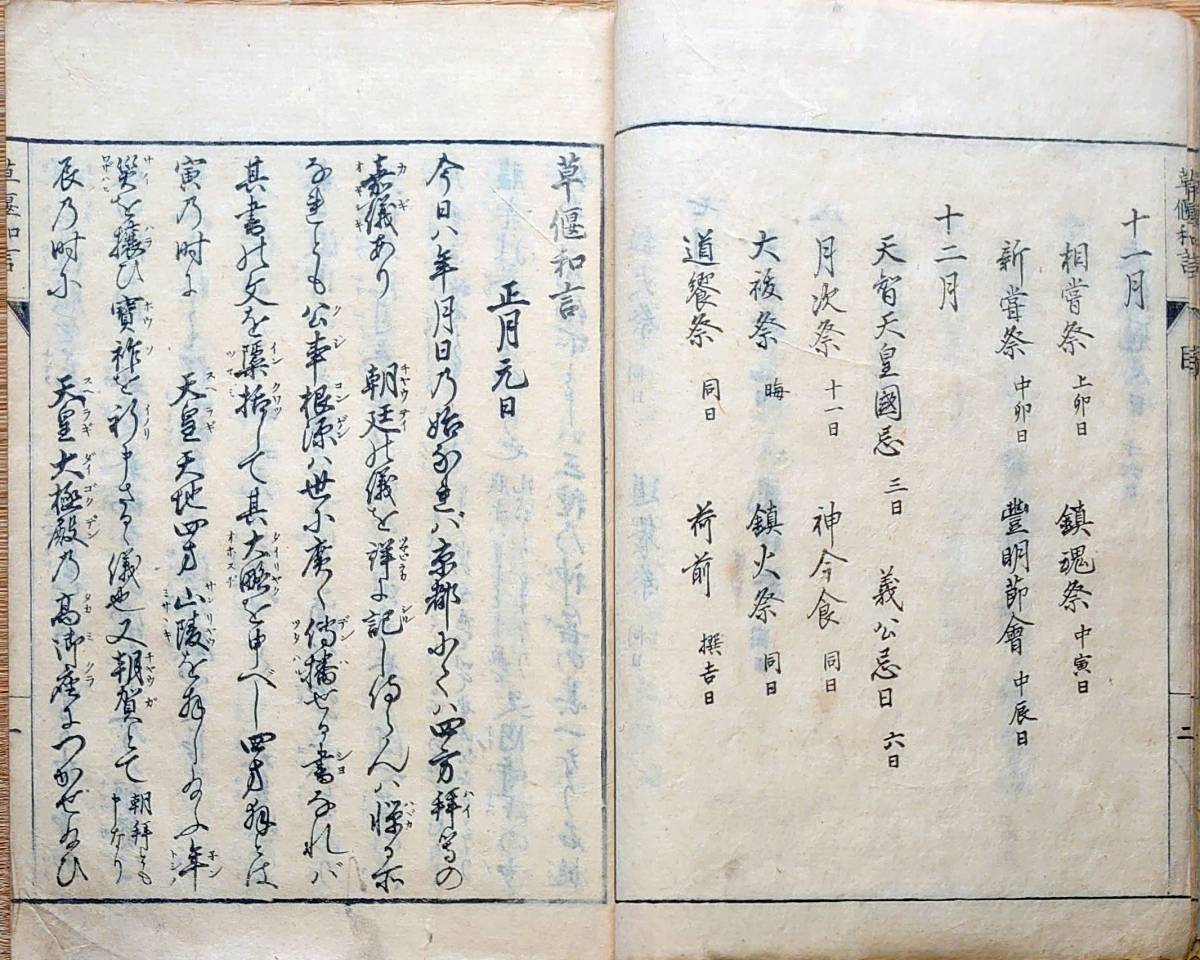 十一月
相嘗祭 上卯日 鎮魂祭 中寅日
新嘗祭 中卯日 豐明節會 中辰日
十二月
天智天皇國忌 三日 義公忌日 六日
月次祭 十一日 神今食 同日
大祓祭 晦 鎮火祭 同日
道饗祭 同日 荷前 撰吉日
二
草偃和言
正月元日
今日ハ年月日乃始なれバ京都にてハ四方拜等の
嘉儀あり 朝廷の儀を詳に記し侍らんハ憚る所
なれども公事根源ハ世に廣く傳播せる書なれバ
其書の文を檃括して其大略を申べし四方拜とは
寅乃時に 天皇天地四方山陵を拜し給ふ年
災を攘ひ寶祚を祈申さるゝ儀也又朝賀とて 朝拜とも申なり
辰乃時に 天皇大極殿乃高御座につかせ給ひ